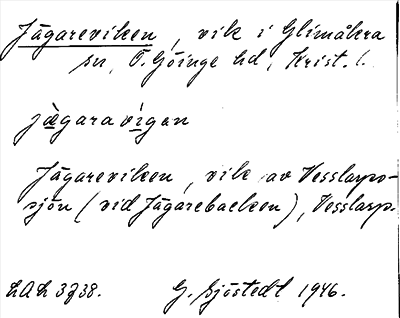 Jägareviken, vik i Glimåkra
sn, Ö. Göinge hd, Krist. l.
jægaravigen
Jägareviken, vik av Vesslarps-
sjön (vid Jägarebacken), Vesslarp.
LAL 3738. G. Sjöstedt 1946.